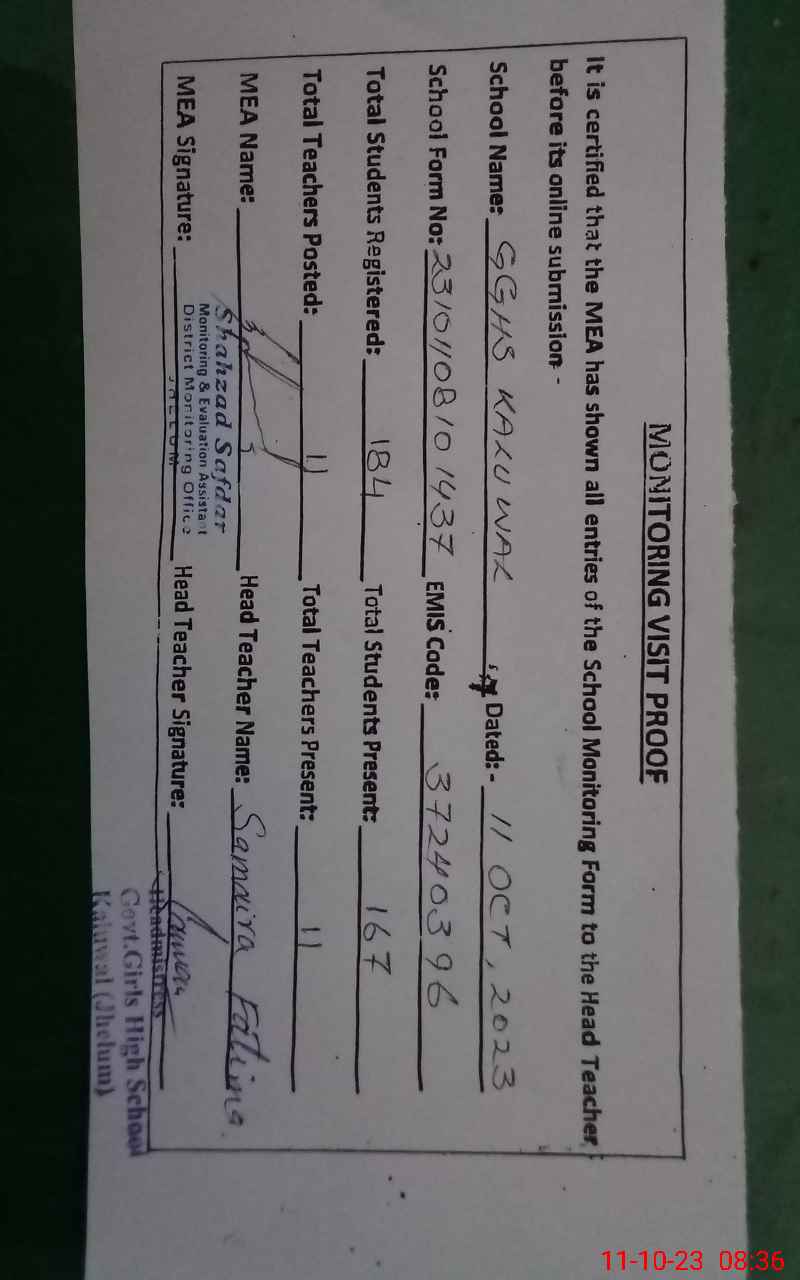 MONITORING VISIT PROOF
It is certified that the MEA has shown all entries of the School Monitoring Form to the Head Teacher
before its online submission -
School Name: GGHS KALUWAL Dated:- 11 OCT, 2023
School Form No: 23101108101437 EMIS Code: 37240396
Total Students Registered: 184 Total Students Present: 167
Total Teachers Posted: 11 Total Teachers Present: 11
MEA Name: Head Teacher Name: Samaira Fatima
Shahzad Safdar
Monitoring & Evaluation Assistant
District Monitoring Office
JHELUM
MEA Signature: Head Teacher Signature:
Headmistress
Govt.Girls High School
Kaluwal (Jhelum)
11-10-23 08:36